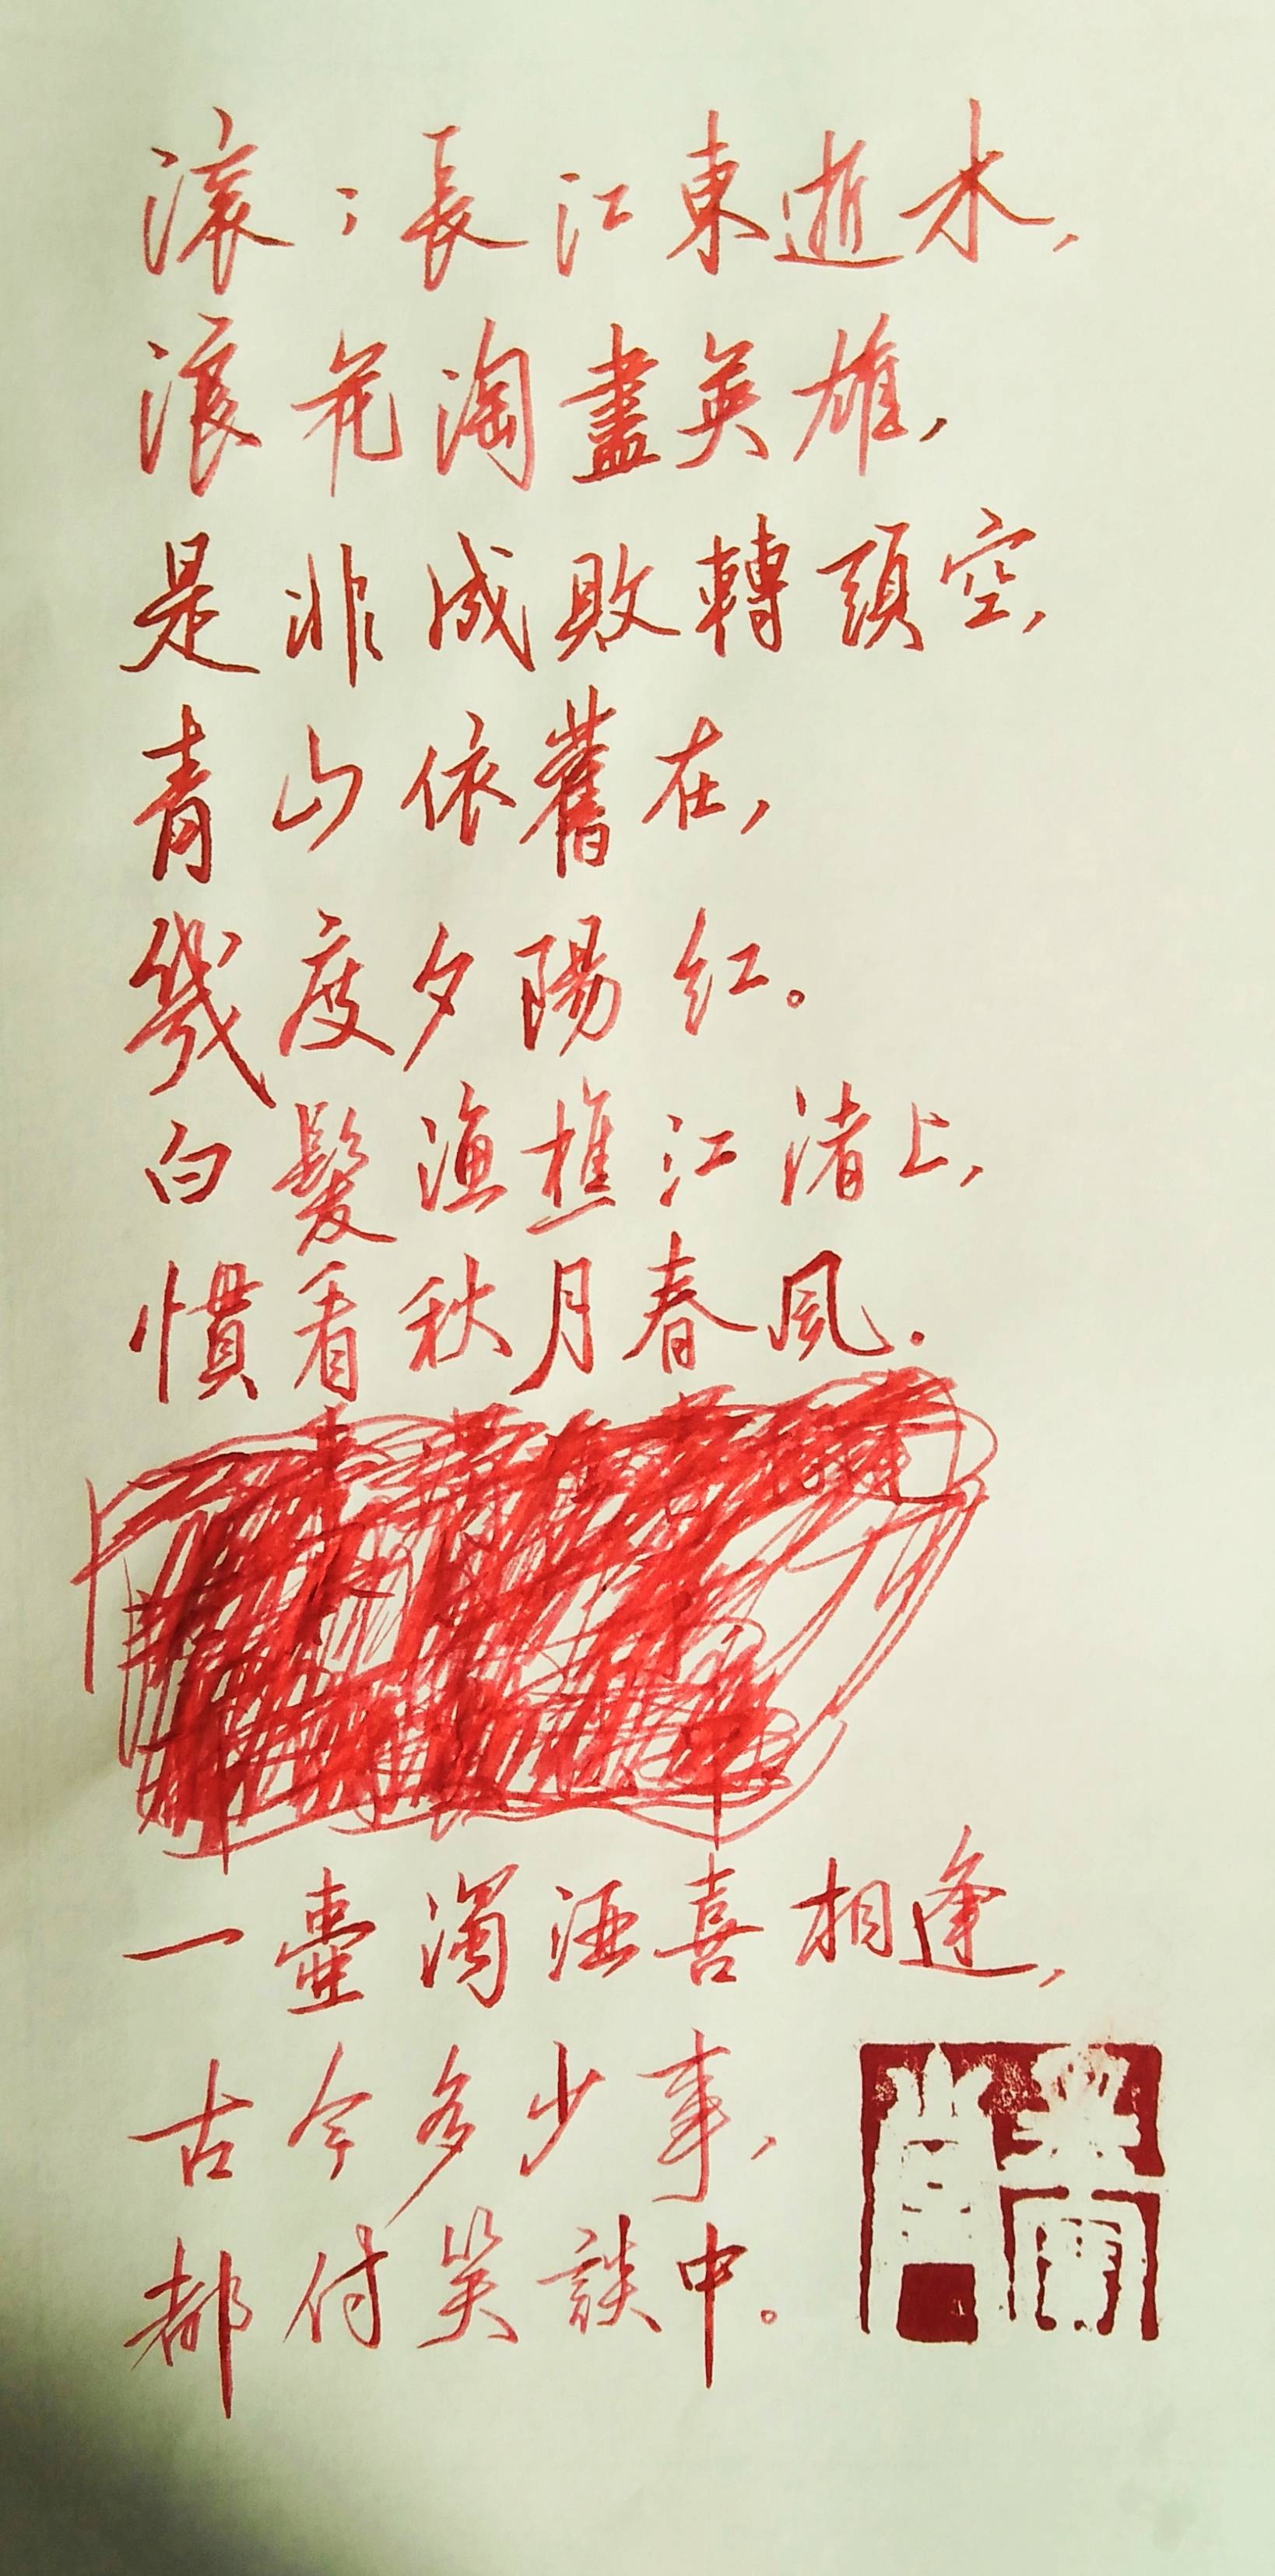 滚〻長江東逝水,
浪花淘盡英雄,
是非成敗轉頭空,
青山依舊在,
幾度夕陽红。
白髮漁樵江渚上,
慣看秋月春風.
一壺濁酒喜相逢,
古今多少事,
都付笑談中。